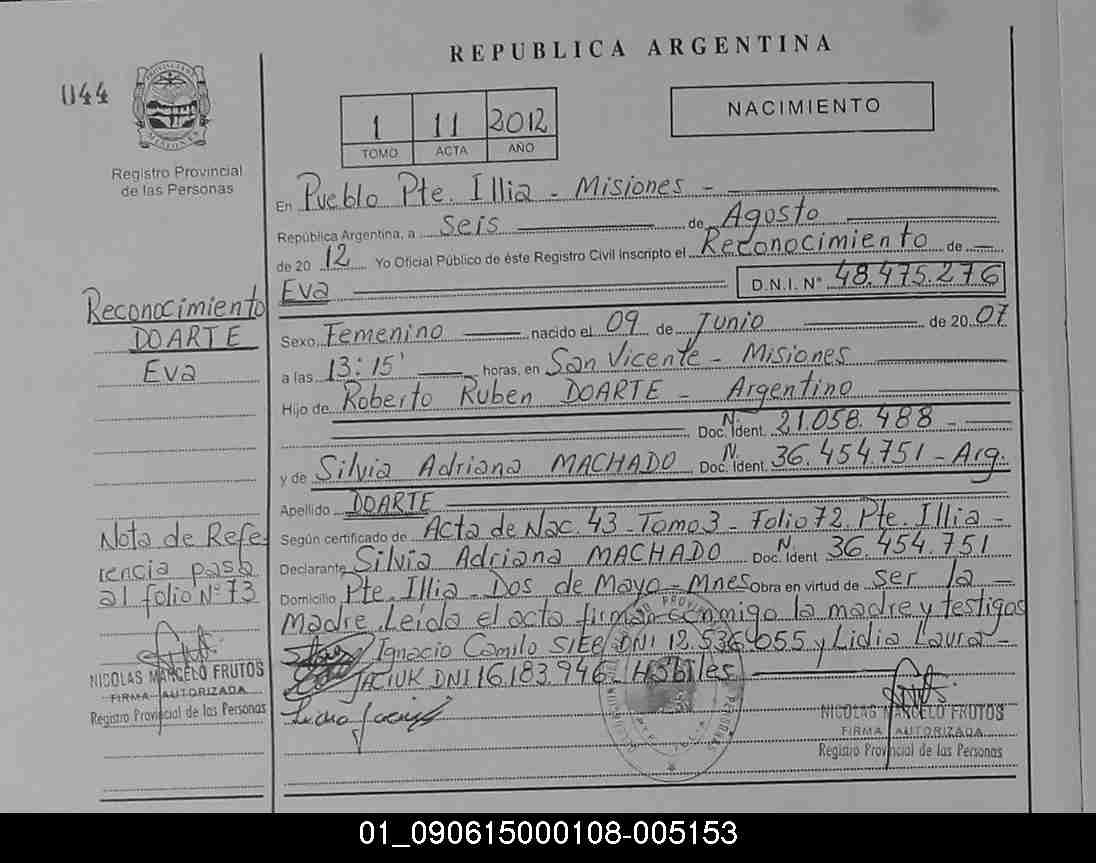 REPUBLICA ARGENTINA
044
1 11 2012
TOMO ACTA AÑO
NACIMIENTO
Registro Provincial
de las Personas
En Pueblo Pte. Illia - Misiones -
República Argentina, a seis de Agosto
de 20 12 Yo Oficial Público de éste Registro Civil Inscripto el Reconocimiento de
Eva D.N.I. N° 48.475.276
Reconocimiento
DOARTE
Eva
Sexo Femenino nacido el 09 de Junio de 20 07
a las 13:15' horas, en San Vicente - Misiones
Hijo de Roberto Ruben DOARTE - Argentino
Doc. Ident. N. 21.058.488 -
y de Silvia Adriana MACHADO Doc. Ident. N. 36.454.751 - Arg.
Apellido DOARTE
Según certificado de Acta de Nac. 43 - Tomo 3 - Folio 72. Pte. Illia -
Declarante Silvia Adriana MACHADO Doc. Ident N. 36.454.751
Domicilio Pte. Illia - Dos de Mayo - Mnes Obra en virtud de ser la -
Madre. Leída el acta firman conmigo la madre y testigos
Ignacio Camilo DNI 12.536.055 y Lidia Laura -
DNI 16.183.946 - Hábiles
Nota de Refe
rencia pasa
al folio N° 73
NICOLAS MARCELO FRUTOS
FIRMA AUTORIZADA
Registro Provincial de las Personas
NICOLAS MARCELO FRUTOS
FIRMA AUTORIZADA
Registro Provincial de las Personas
01_090615000108-005153